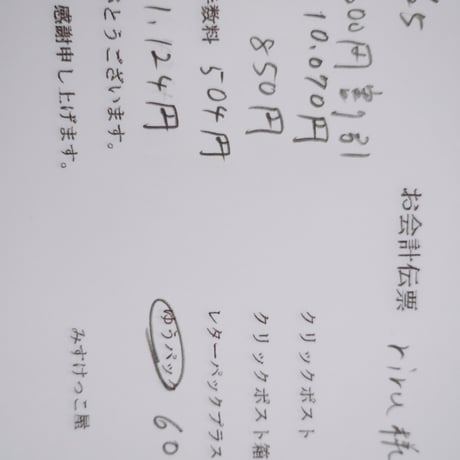 65 お会計伝票 riru様
00円 割引
10.070円 クリックポスト
850円 クリックポスト箱
数料 504円 レターパックプラス
1.124円 ゆうパック 60
とうございます。
感謝申し上げます。 みすけっこ屋